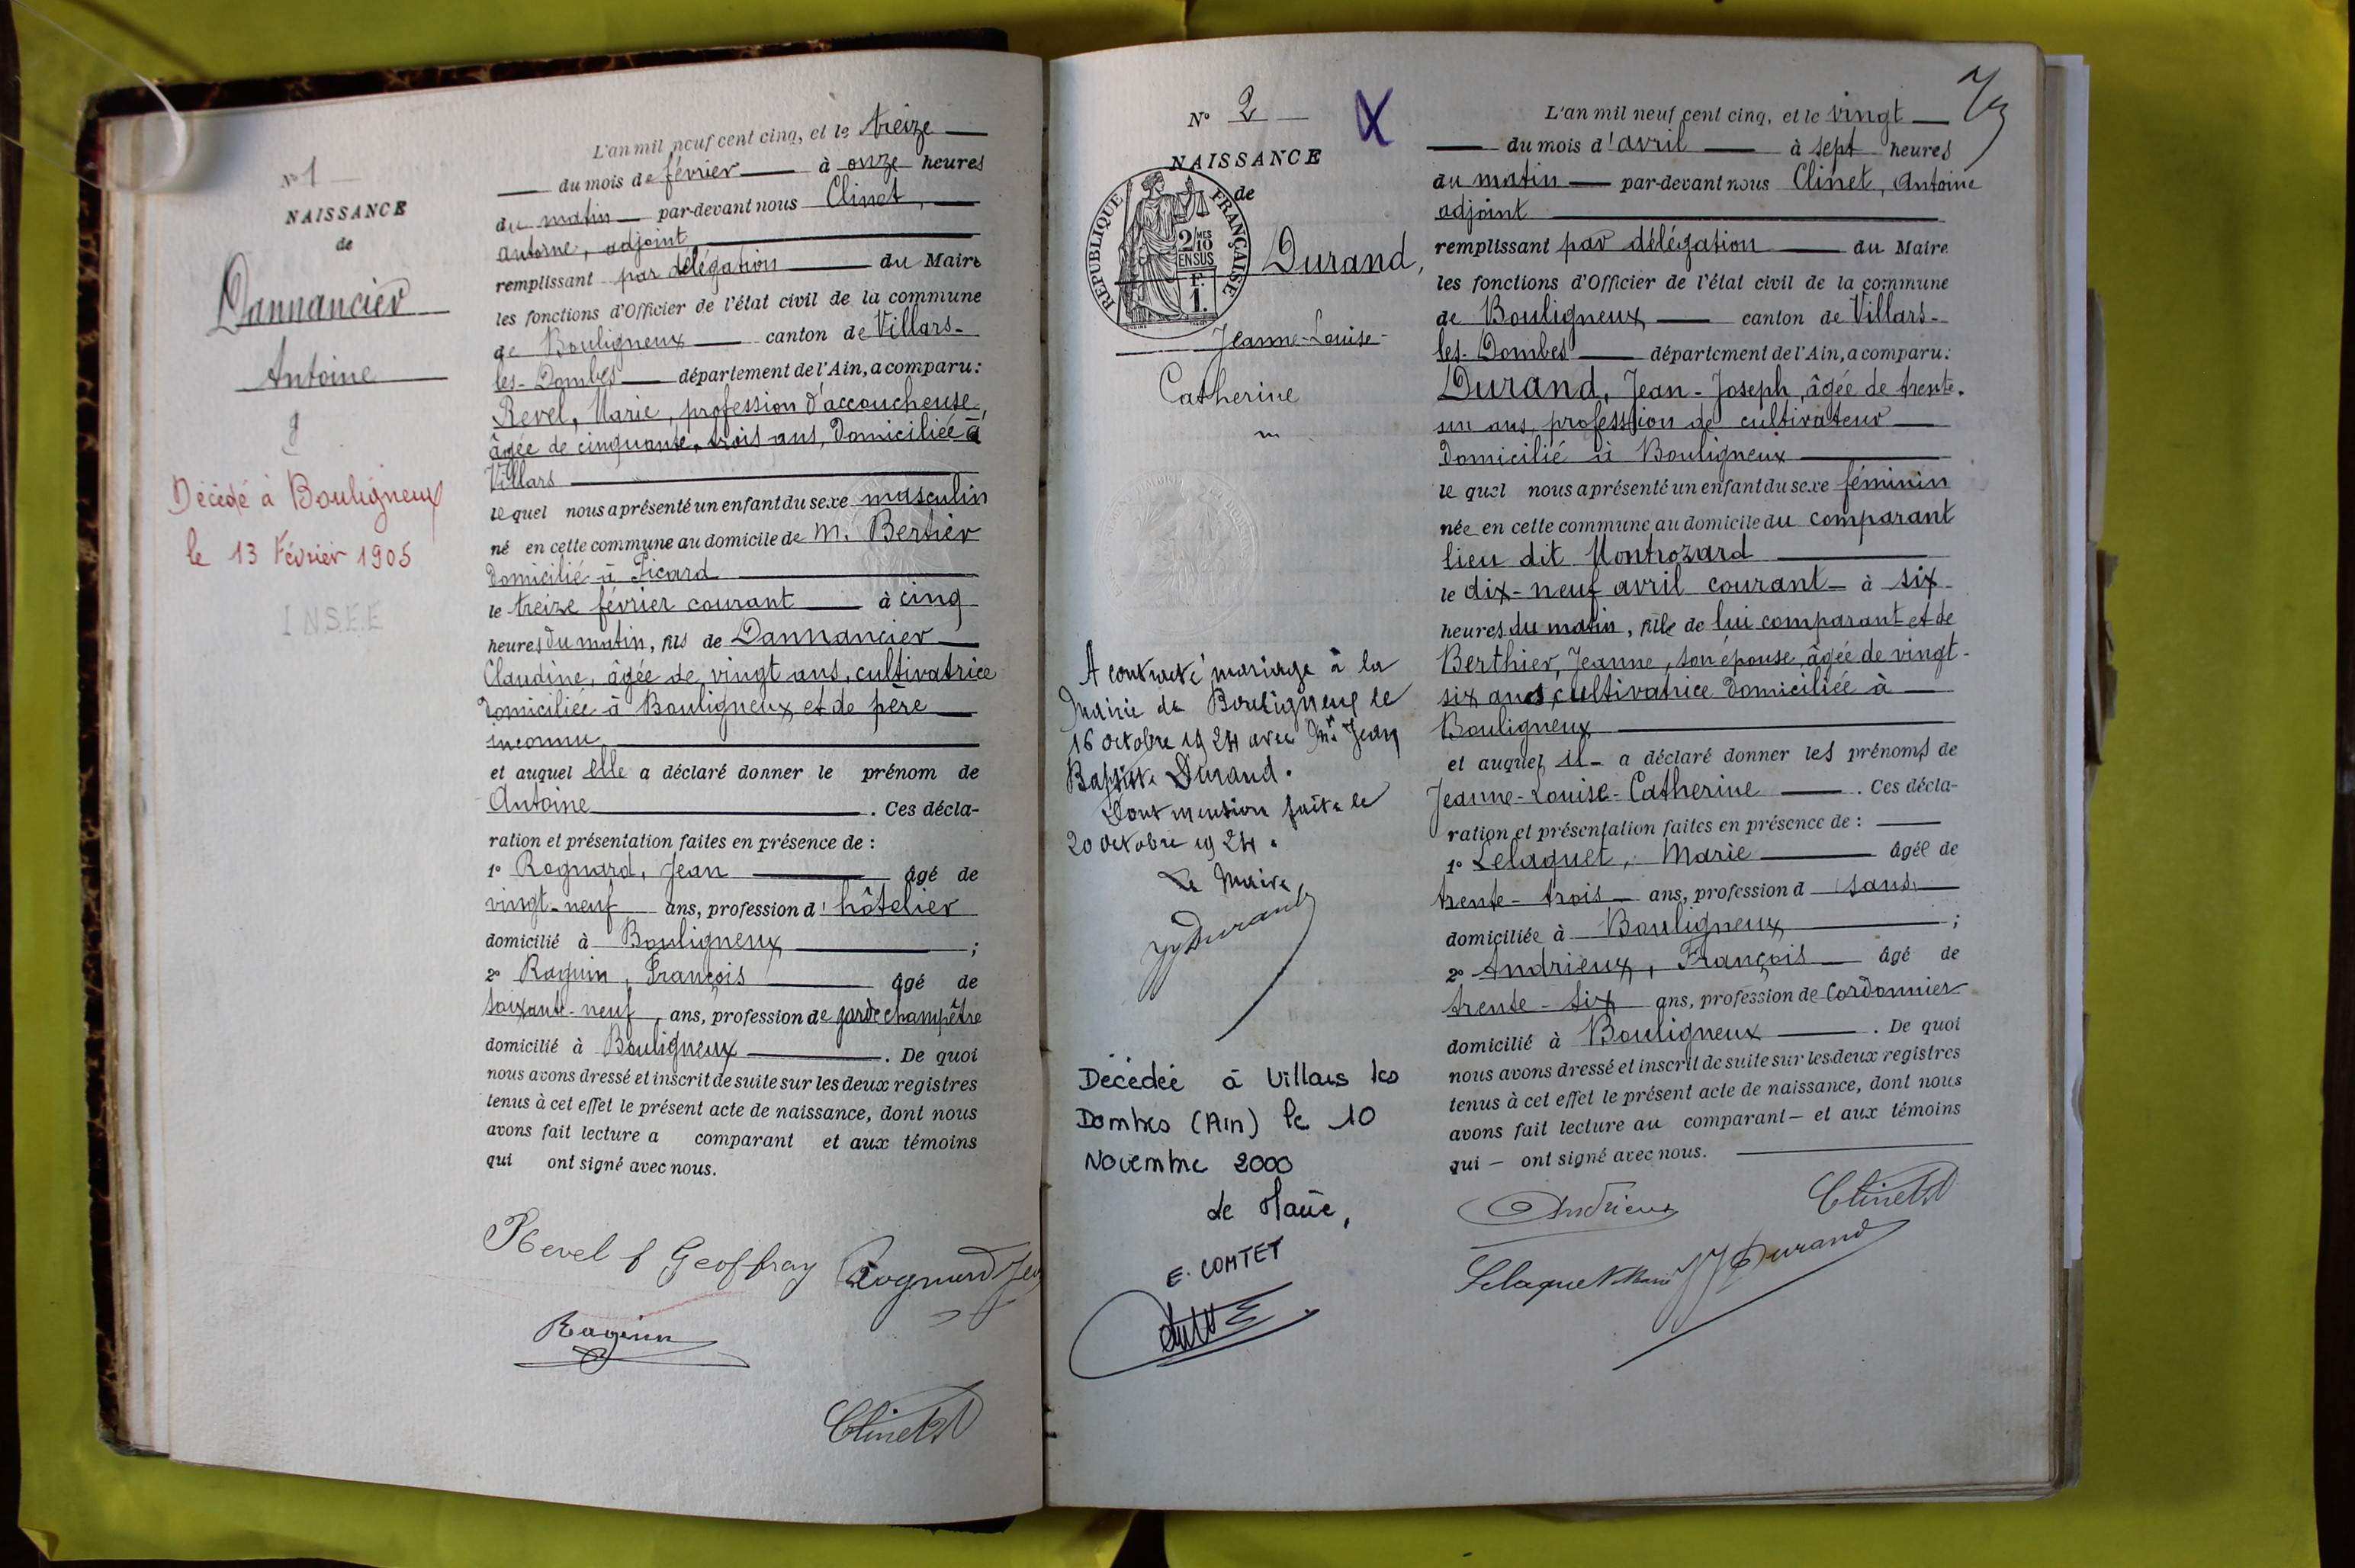 N° 1
NAISSANCE
de
Dannancier
Antoine
Décédé à Bouligneux
le 13 Février 1905
I N.S.E.E
L'an mil neuf cent cinq, et le treize
du mois de février à onze heures
du matin par-devant nous Clinet,
Antoine, adjoint
remplissant par délégation du Maire
les fonctions d'Officier de l'état civil de la commune
de Bouligneux canton de Villars-
les-Dombes département de l'Ain, a comparu:
Revel, Marie, profession d'accoucheuse,
âgée de cinquante-trois ans, domiciliée à
Villars
le quel nous a présenté un enfant du sexe masculin
né en cette commune au domicile de M. Bertier
domicilié à Picard
le treize février courant à cinq
heures du matin, fils de Dannancier
Claudine, âgée de vingt ans, cultivatrice
domiciliée à Bouligneux et de père
inconnu
et auquel elle a déclaré donner le prénom de
Antoine. Ces décla-
ration et présentation faites en présence de :
1° Rognard, Jean âgé de
vingt-neuf ans, profession d'hôtelier
domicilié à Bouligneux ;
2° Raguin, François âgé de
soixante-neuf ans, profession de garde champêtre
domicilié à Bouligneux. De quoi
nous avons dressé et inscrit de suite sur les deux registres
tenus à cet effet le présent acte de naissance, dont nous
avons fait lecture a comparant et aux témoins
qui ont signé avec nous.
Revel f Geoffray Rognard Jean
Raguin
Clinet
N° 2
X
NAISSANCE
de
RÉPUBLIQUE FRANÇAISE
2/10 MES
EN SUS
F.
1.
Durand,
Jeanne-Louise-
Catherine
A contracté mariage à la
Mairie de Bouligneux le
16 octobre 1924 avec Mr Jean
Baptiste Durand.
Dont mention faite le
20 octobre 1924.
Le Maire,
JJ Durand
Décédée à Villars les
Dombes (Ain) le 10
Novembre 2000
Le Maire,
E. COMTET
L'an mil neuf cent cinq, et le vingt
du mois d'avril à sept heures
du matin par-devant nous Clinet, Antoine
adjoint
remplissant par délégation du Maire
les fonctions d'Officier de l'état civil de la commune
de Bouligneux canton de Villars-
les-Dombes département de l'Ain, a comparu:
Durand, Jean-Joseph, âgée de trente-
un ans, profession de cultivateur
domicilié à Bouligneux
le quel nous a présenté un enfant du sexe féminin
née en cette commune au domicile du comparant
lieu dit Montrozard
le dix-neuf avril courant à six
heures du matin, fille de lui comparant et de
Berthier, Jeanne, son épouse, âgée de vingt-
six ans, cultivatrice domiciliée à
Bouligneux
et auquel il a déclaré donner les prénoms de
Jeanne-Louise-Catherine. Ces décla-
ration et présentation faites en présence de :
1° Lelaquet, Marie âgée de
trente-trois ans, profession d sans
domiciliée à Bouligneux ;
2° Andrieux, François âgé de
trente-six ans, profession de cordonnier
domicilié à Bouligneux. De quoi
nous avons dressé et inscrit de suite sur les deux registres
tenus à cet effet le présent acte de naissance, dont nous
avons fait lecture au comparant et aux témoins
qui ont signé avec nous.
Andrieux Clinet
Lelaquet Marie JJ Durand